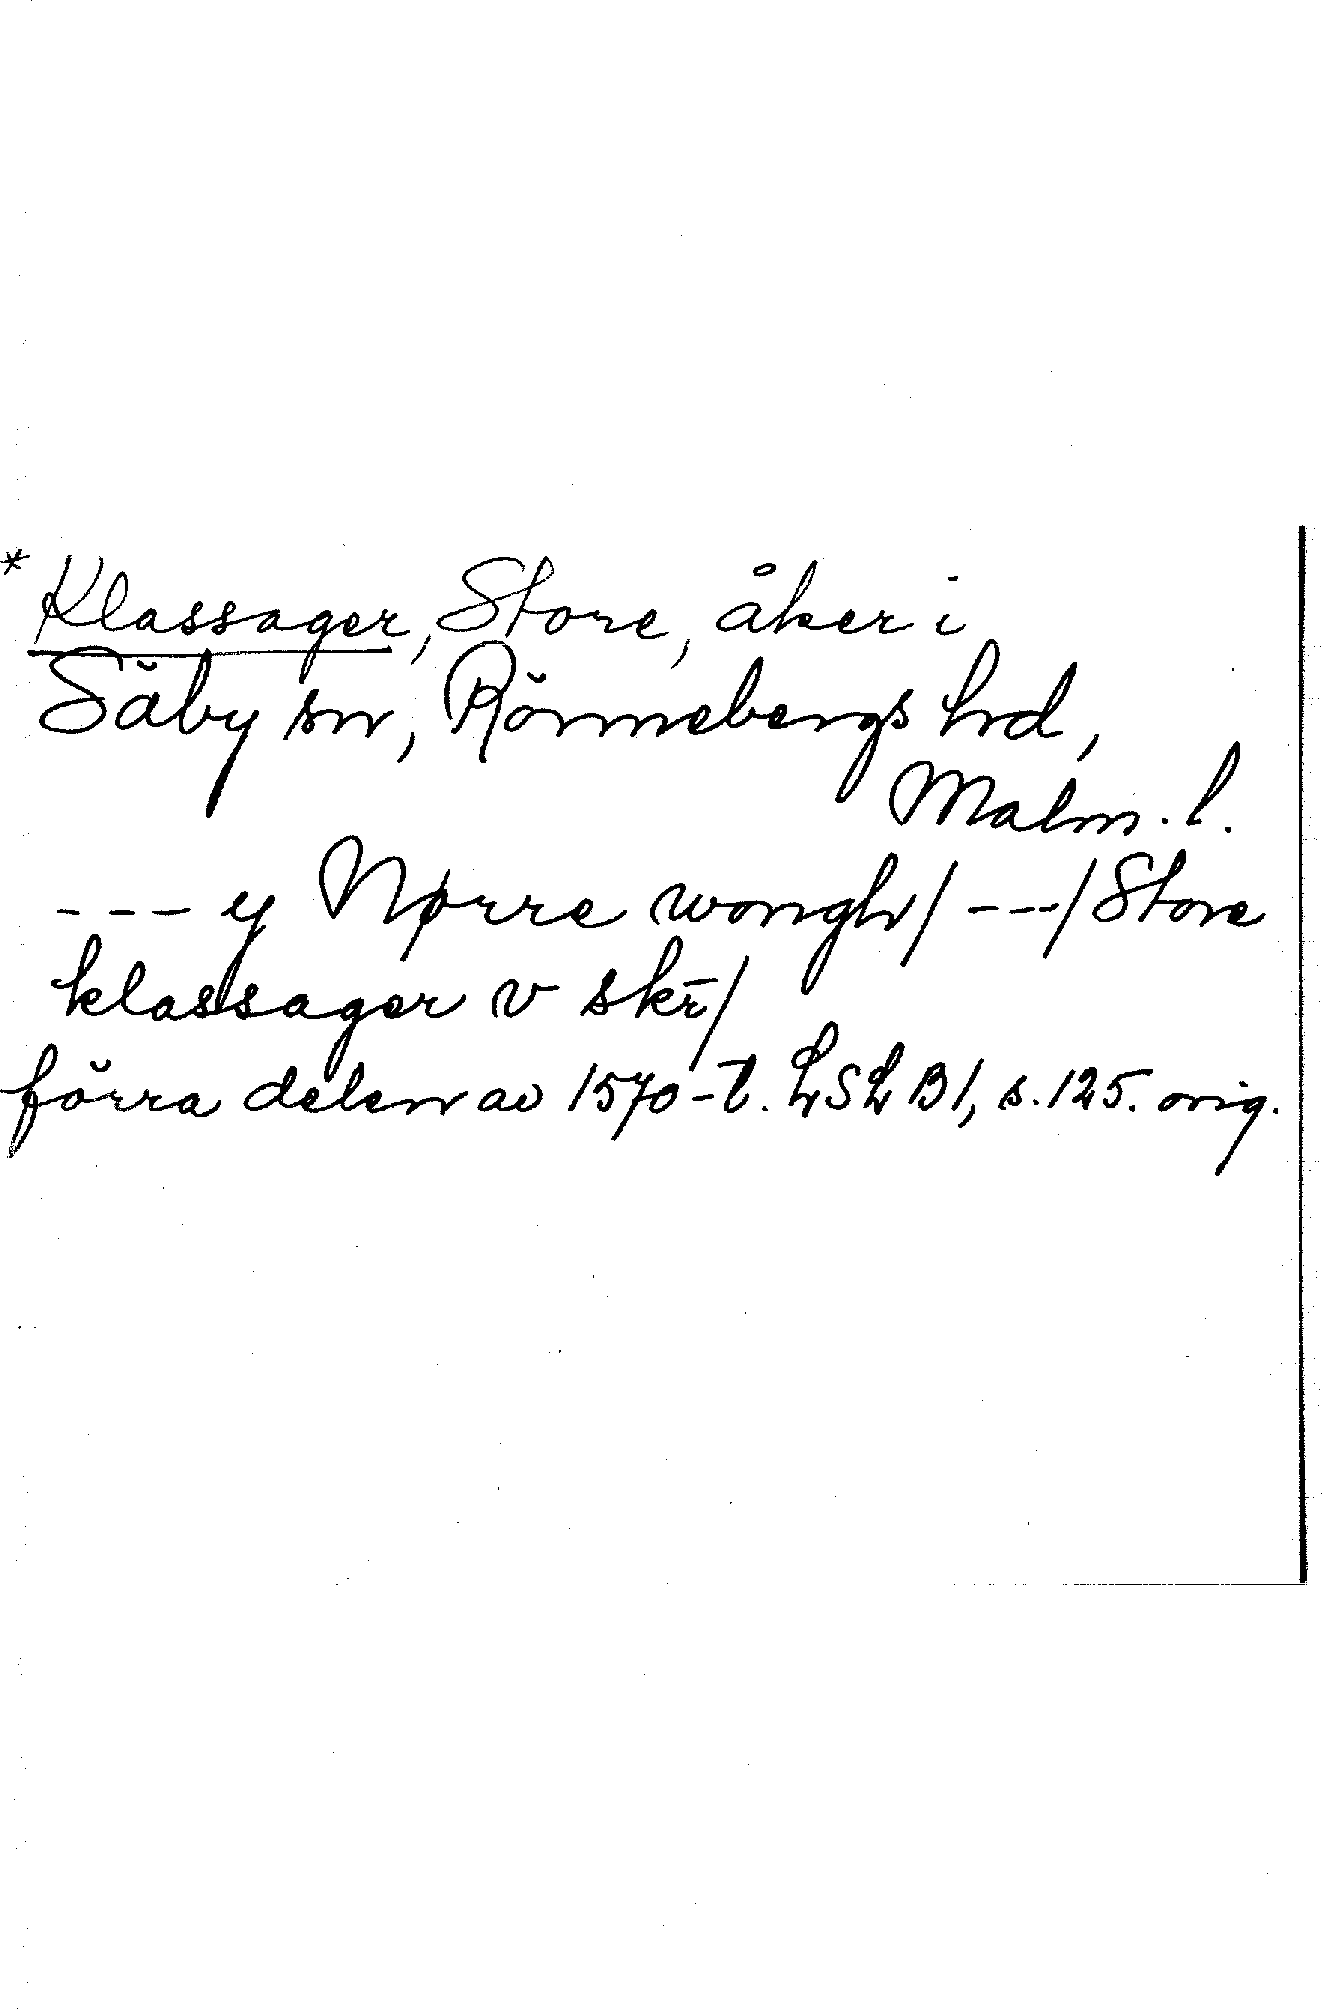 * Klassager, Store, åker i
Säby sn, Rönnebergs hd,
Malm. l.
--- y Nørre wongh/ ---/ Store
klassager v skr̄/
förra delen av 1570-t. LSL B1, s. 125. orig.